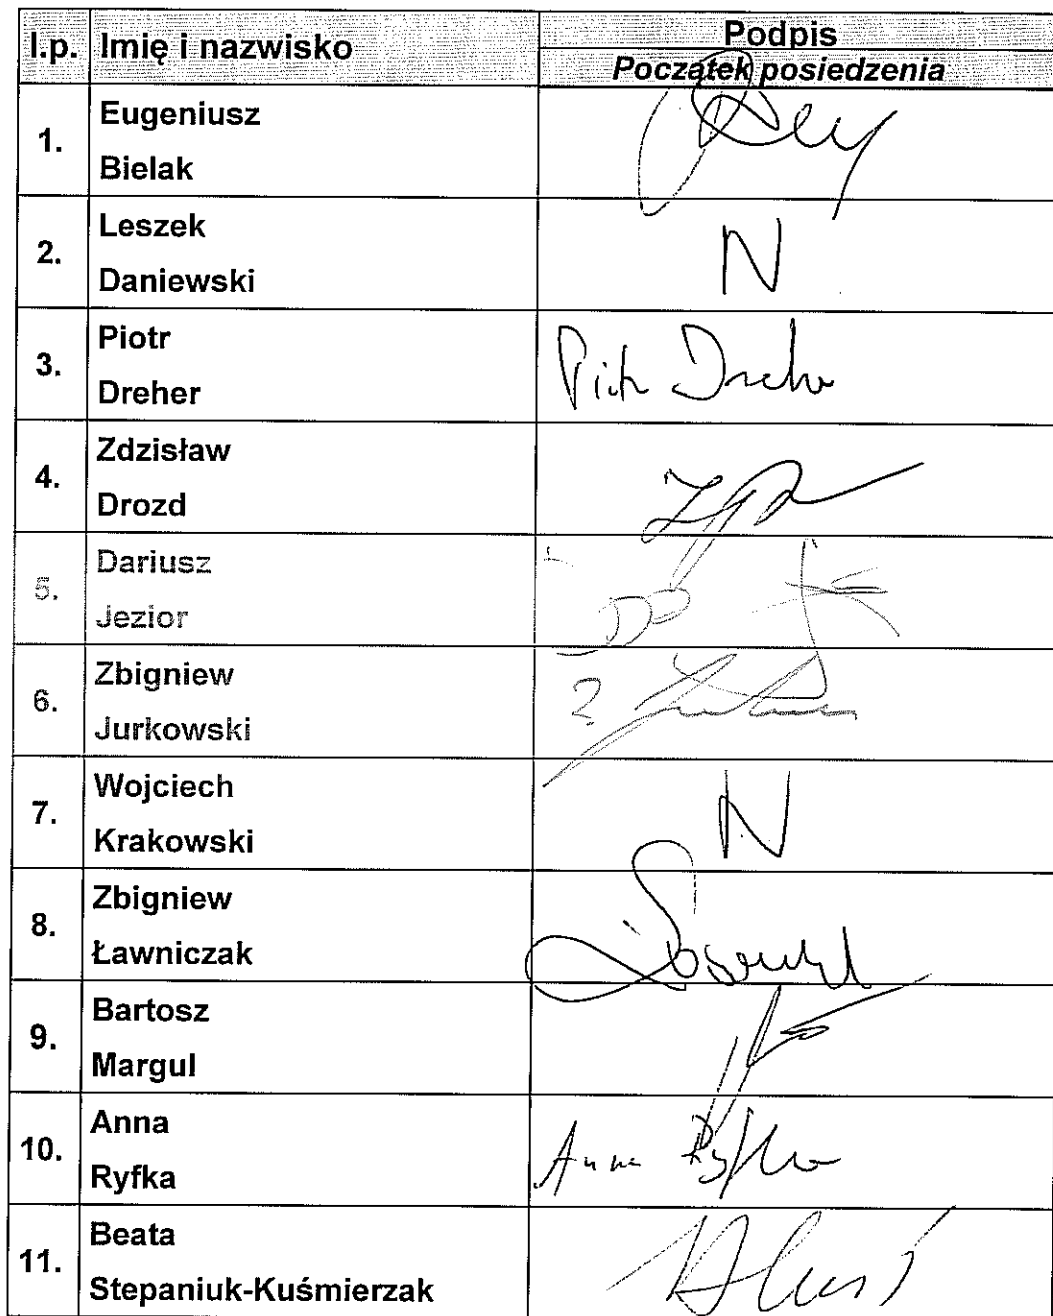 l.p. Imię i nazwisko Podpis
Początek posiedzenia
1. Eugeniusz
Bielak
2. Leszek
Daniewski N
3. Piotr
Dreher Piotr Dreher
4. Zdzisław
Drozd
5. Dariusz
Jezior
6. Zbigniew
Jurkowski
7. Wojciech
Krakowski N
8. Zbigniew
Ławniczak
9. Bartosz
Margul
10. Anna
Ryfka Anna Ryfka
11. Beata
Stepaniuk-Kuśmierzak